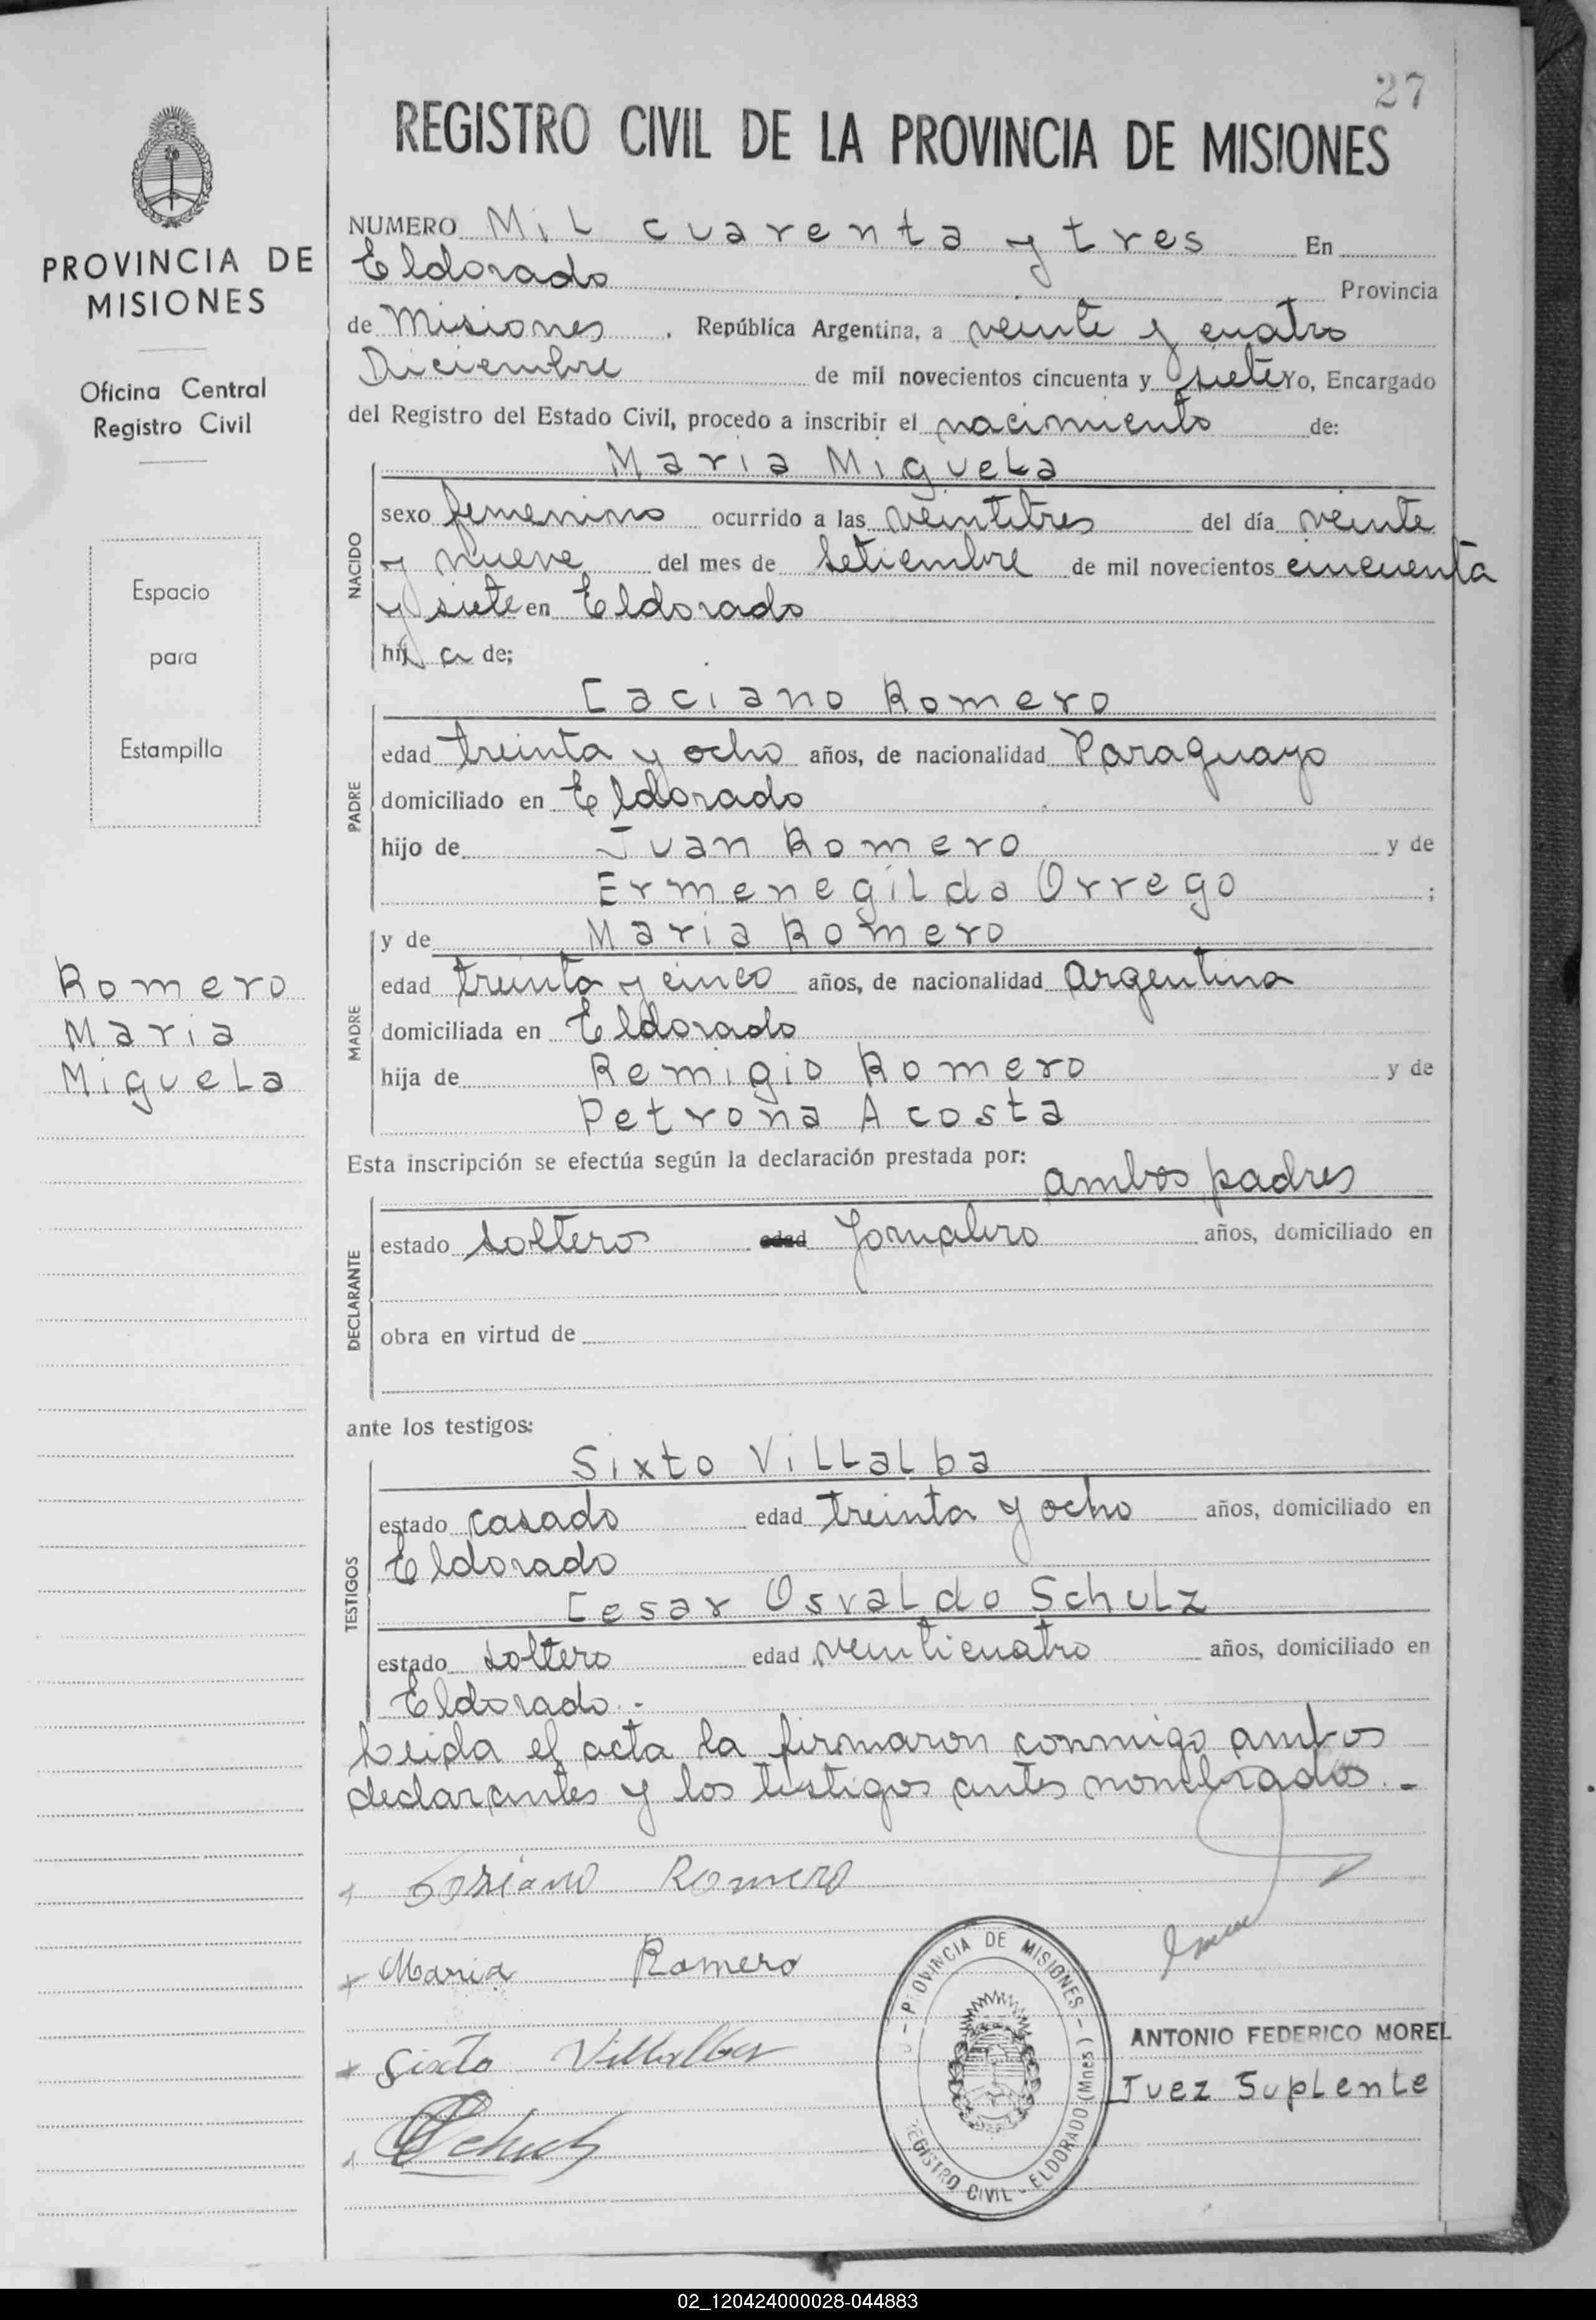 27
REGISTRO CIVIL DE LA PROVINCIA DE MISIONES
PROVINCIA DE
MISIONES
Oficina Central
Registro Civil
Espacio
para
Estampilla
Romero
Maria
Miguela
NUMERO Mil cuarenta y tres En
Eldorado Provincia
de Misiones . República Argentina, a veinte y cuatro
Diciembre de mil novecientos cincuenta y siete Yo, Encargado
del Registro del Estado Civil, procedo a inscribir el nacimiento de:
NACIDO
Maria Miguela
sexo femenino ocurrido a las veintitres del día veinte
y nueve del mes de Setiembre de mil novecientos cincuenta
y siete en Eldorado
hij a de;
PADRE
Caciano Romero
edad treinta y ocho años, de nacionalidad Paraguayo
domiciliado en Eldorado
hijo de Juan Romero y de
Ermenegilda Orrego ;
MADRE
y de Maria Romero
edad treinta y cinco años, de nacionalidad Argentina
domiciliada en Eldorado
hija de Remigio Romero y de
Petrona Acosta
Esta inscripción se efectúa según la declaración prestada por:
ambos padres
DECLARANTE
estado soltero edad Jornalero años, domiciliado en
obra en virtud de
ante los testigos:
TESTIGOS
Sixto Villalba
estado casado edad treinta y ocho años, domiciliado en
Eldorado
Cesar Osvaldo Schulz
estado soltero edad veinticuatro años, domiciliado en
Eldorado.-
Leida el acta la firmaron conmigo ambos
declarantes y los testigos antes nombrados.-
Romero
Maria Romero
Sixto Villalba
PROVINCIA DE MISIONES
REGISTRO CIVIL - ELDORADO (Mnes)
ANTONIO FEDERICO MOREL
Juez Suplente
02_120424000028-044883